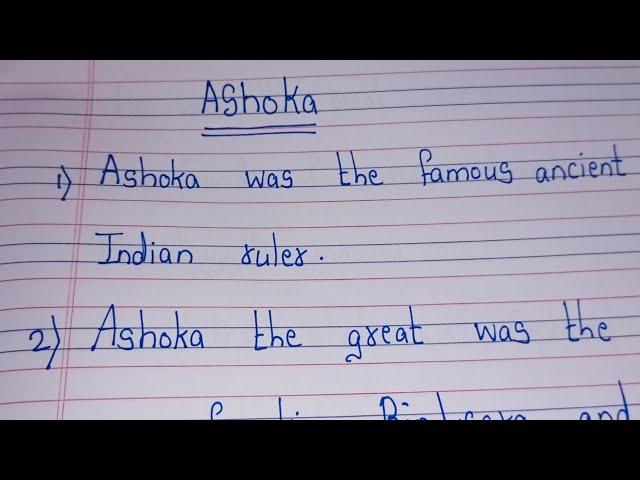 AShoka
1) Ashoka was the famous ancient
Indian ruler.
2) Ashoka the great was the
and